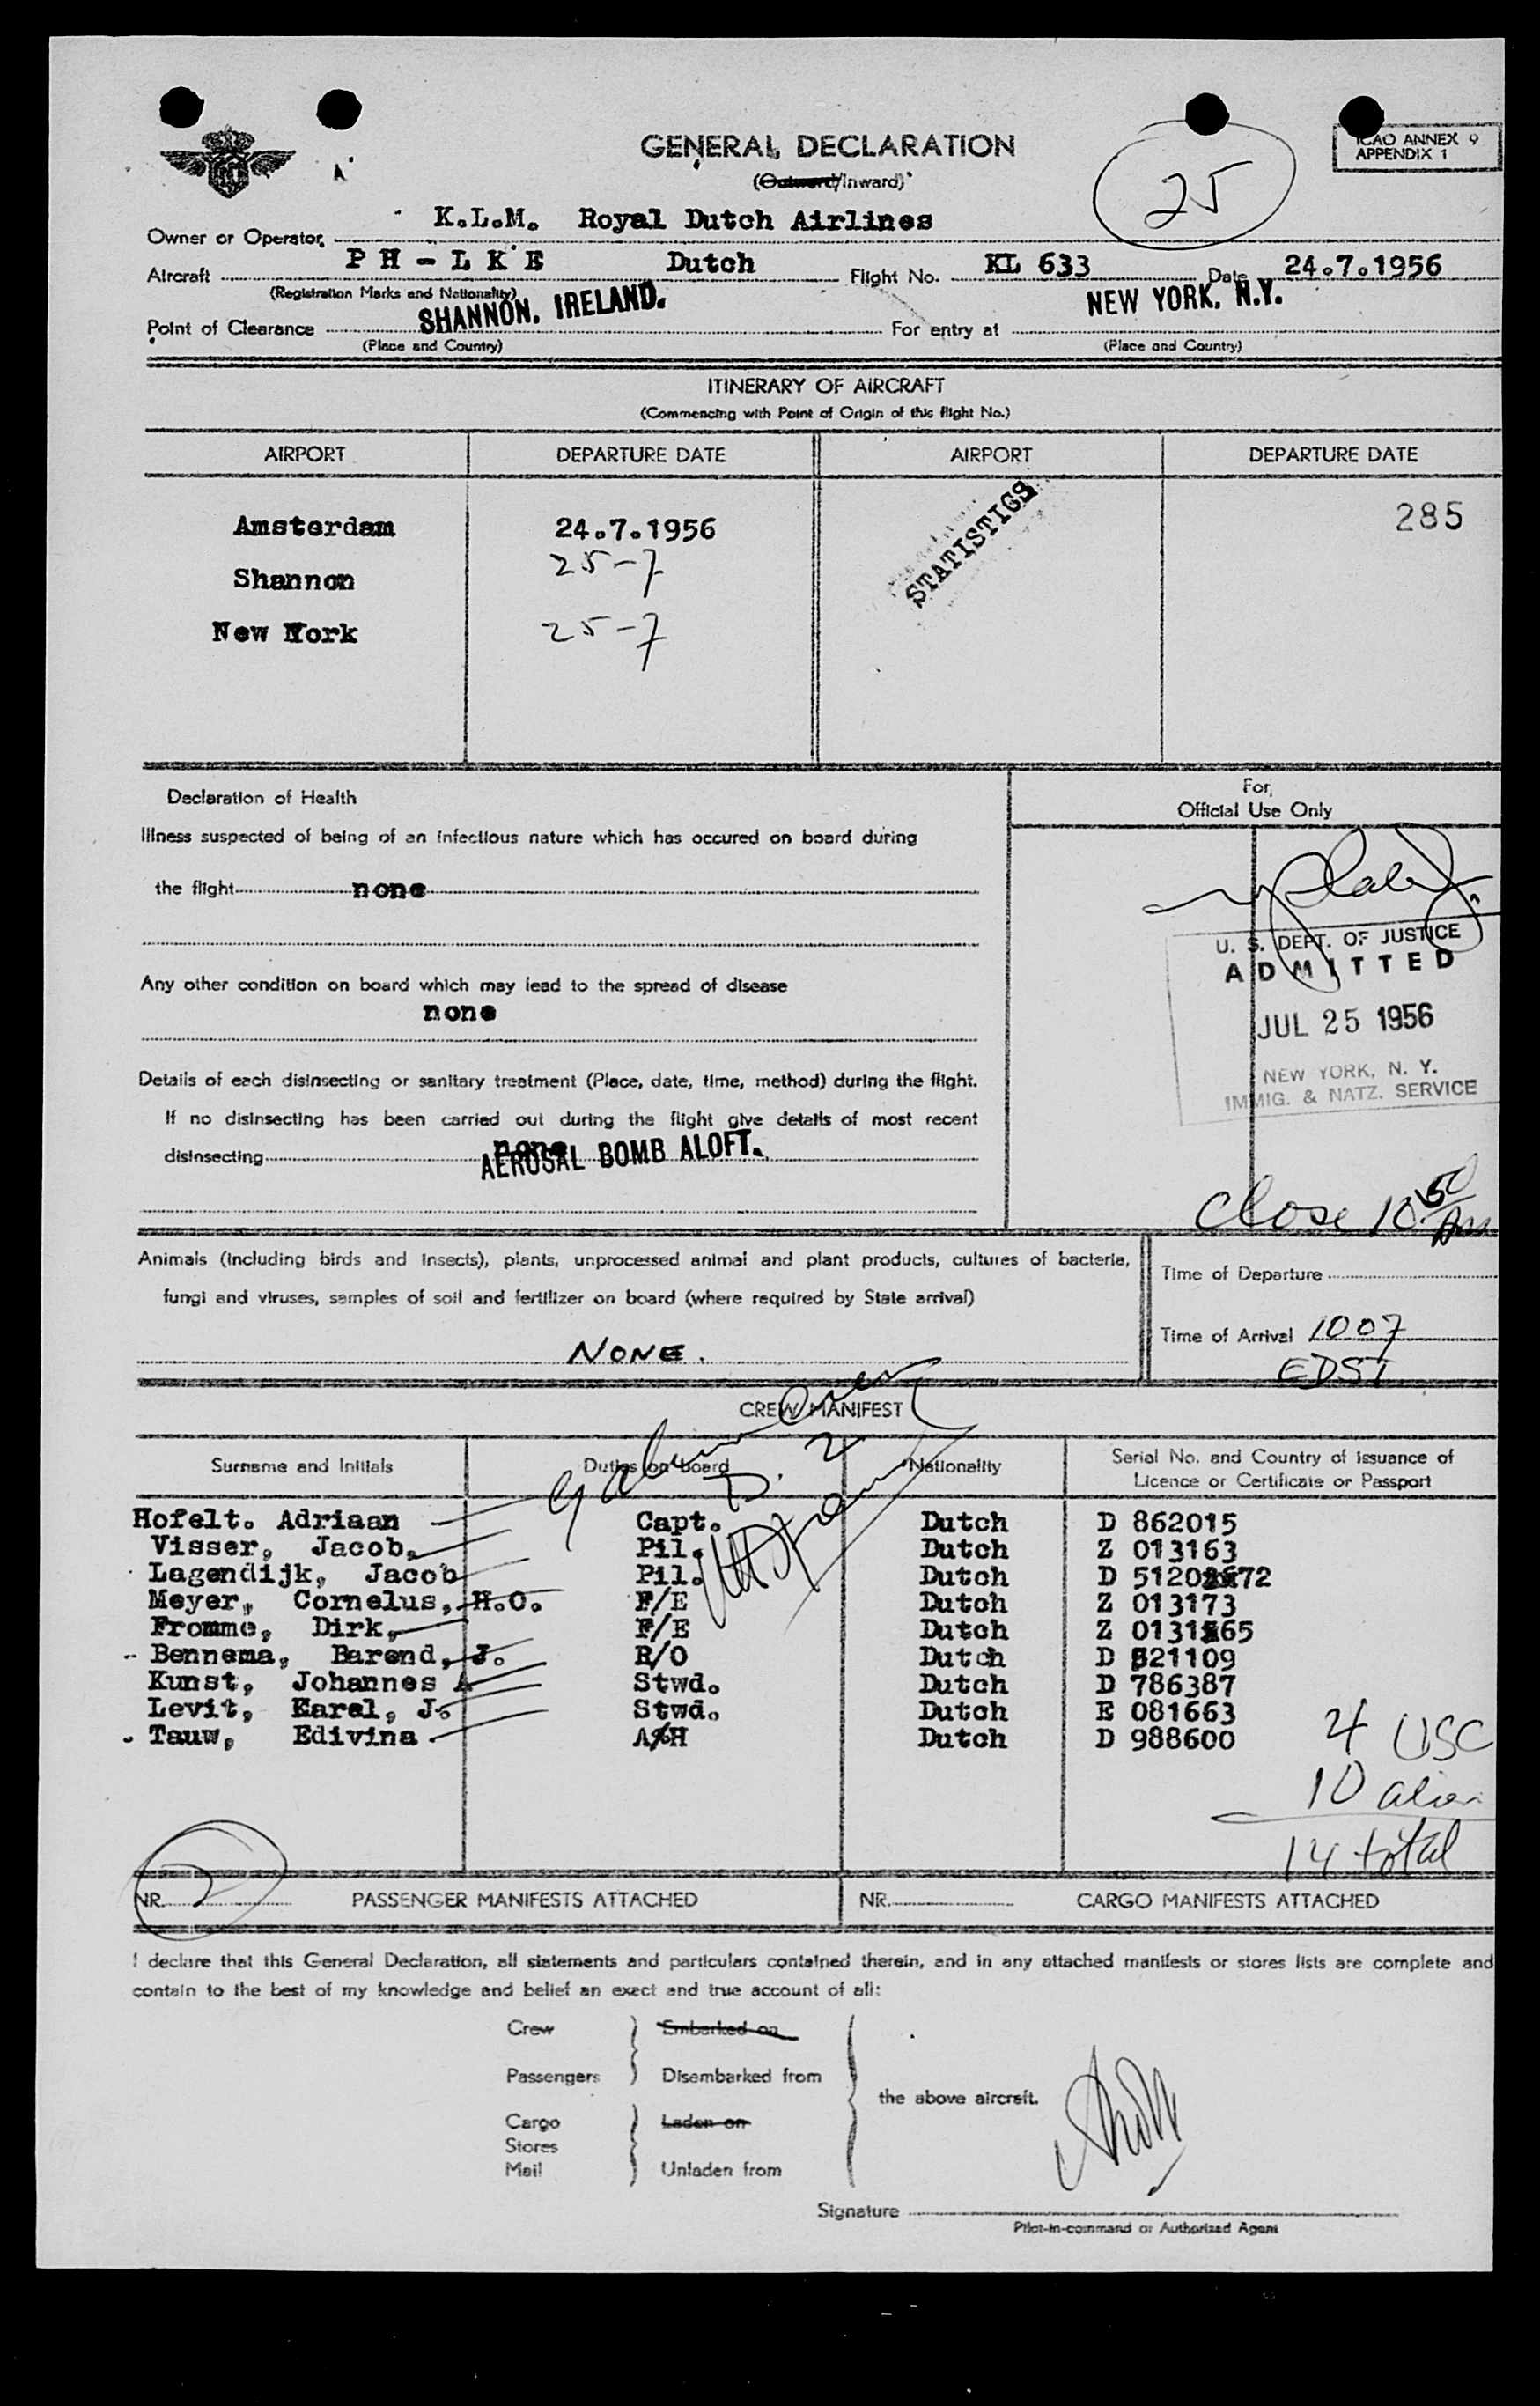 GENERAL DECLARATION
(Outward/Inward)*
25
ICAO ANNEX 9
APPENDIX 1
Owner or Operator K.L.M. Royal Dutch Airlines
Aircraft PH-LKE Dutch Flight No. KL 633 Date 24.7.1956
(Registration Marks and Nationality)
Point of Clearance SHANNON, IRELAND. For entry at NEW YORK, N.Y.
(Place and Country) (Place and Country)
ITINERARY OF AIRCRAFT
(Commencing with Point of Origin of this flight No.)
AIRPORT DEPARTURE DATE AIRPORT DEPARTURE DATE
Amsterdam 24.7.1956 STATISTICS 285
Shannon 25-7
New York 25-7
Declaration of Health
For
Official Use Only
Illness suspected of being of an infectious nature which has occured on board during
the flight none
U. S. DEPT. OF JUSTICE
ADMITTED
JUL 25 1956
NEW YORK, N. Y.
IMMIG. & NATZ. SERVICE
Any other condition on board which may lead to the spread of disease
none
Details of each disinsecting or sanitary treatment (Place, date, time, method) during the flight.
If no disinsecting has been carried out during the flight give details of most recent
disinsecting none
AEROSAL BOMB ALOFT.
Close 10 50 Am
Animals (including birds and insects), plants, unprocessed animal and plant products, cultures of bacteria,
fungi and viruses, samples of soil and fertilizer on board (where required by State arrival)
NONE.
Time of Departure
Time of Arrival 1007
EDST
CREW MANIFEST
Surname and Initials Duties on board Nationality Serial No. and Country of Issuance of
Licence or Certificate or Passport
Hofelt. Adriaan Capt. Dutch D 862015
Visser, Jacob, Pil. Dutch Z 013163
Lagendijk, Jacob Pil. Dutch D
Meyer, Cornelus, H.O. F/E Dutch Z 013173
Fromme, Dirk, F/E Dutch Z
Bennema, Barend, J. R/O Dutch D
Kunst, Johannes A Stwd. Dutch D 786387
Levit, Karel, J. Stwd. Dutch E 081663
Tauw, Edivina A/H Dutch D 988600
4 USC
10 alien
14 total
NR. 2 PASSENGER MANIFESTS ATTACHED NR. CARGO MANIFESTS ATTACHED
I declare that this General Declaration, all statements and particulars contained therein, and in any attached manifests or stores lists are complete and
contain to the best of my knowledge and belief an exact and true account of all:
Crew Embarked on
Passengers Disembarked from
the above aircraft.
Cargo Laden on
Stores
Mail Unladen from
Signature
Pilot-in-command or Authorized Agent